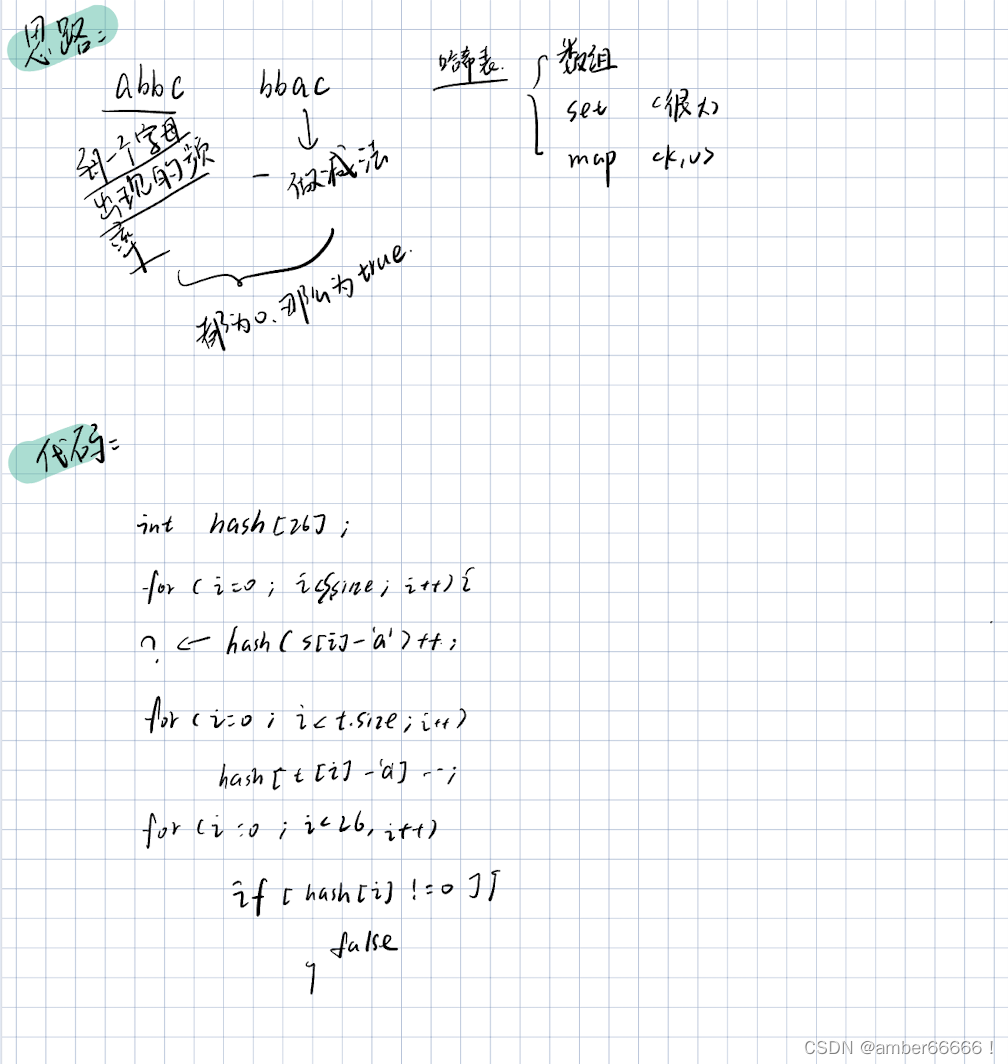 思路:
abbc bbac
哈希表 数组
set (很大)
map <k,v>
到一个字母
出现的频
率+
- 做减法
都为0.那么为true.
代码:
int hash[26];
for (i=0; i<s.size; i++){
? ← hash(s[i]-'a')++;
for (i=0; i<t.size; i++)
hash[t[i]-'a]--;
for (i=0; i<26, i++)
if [hash[i] !=0]{
false
}
CSDN @amber66666!